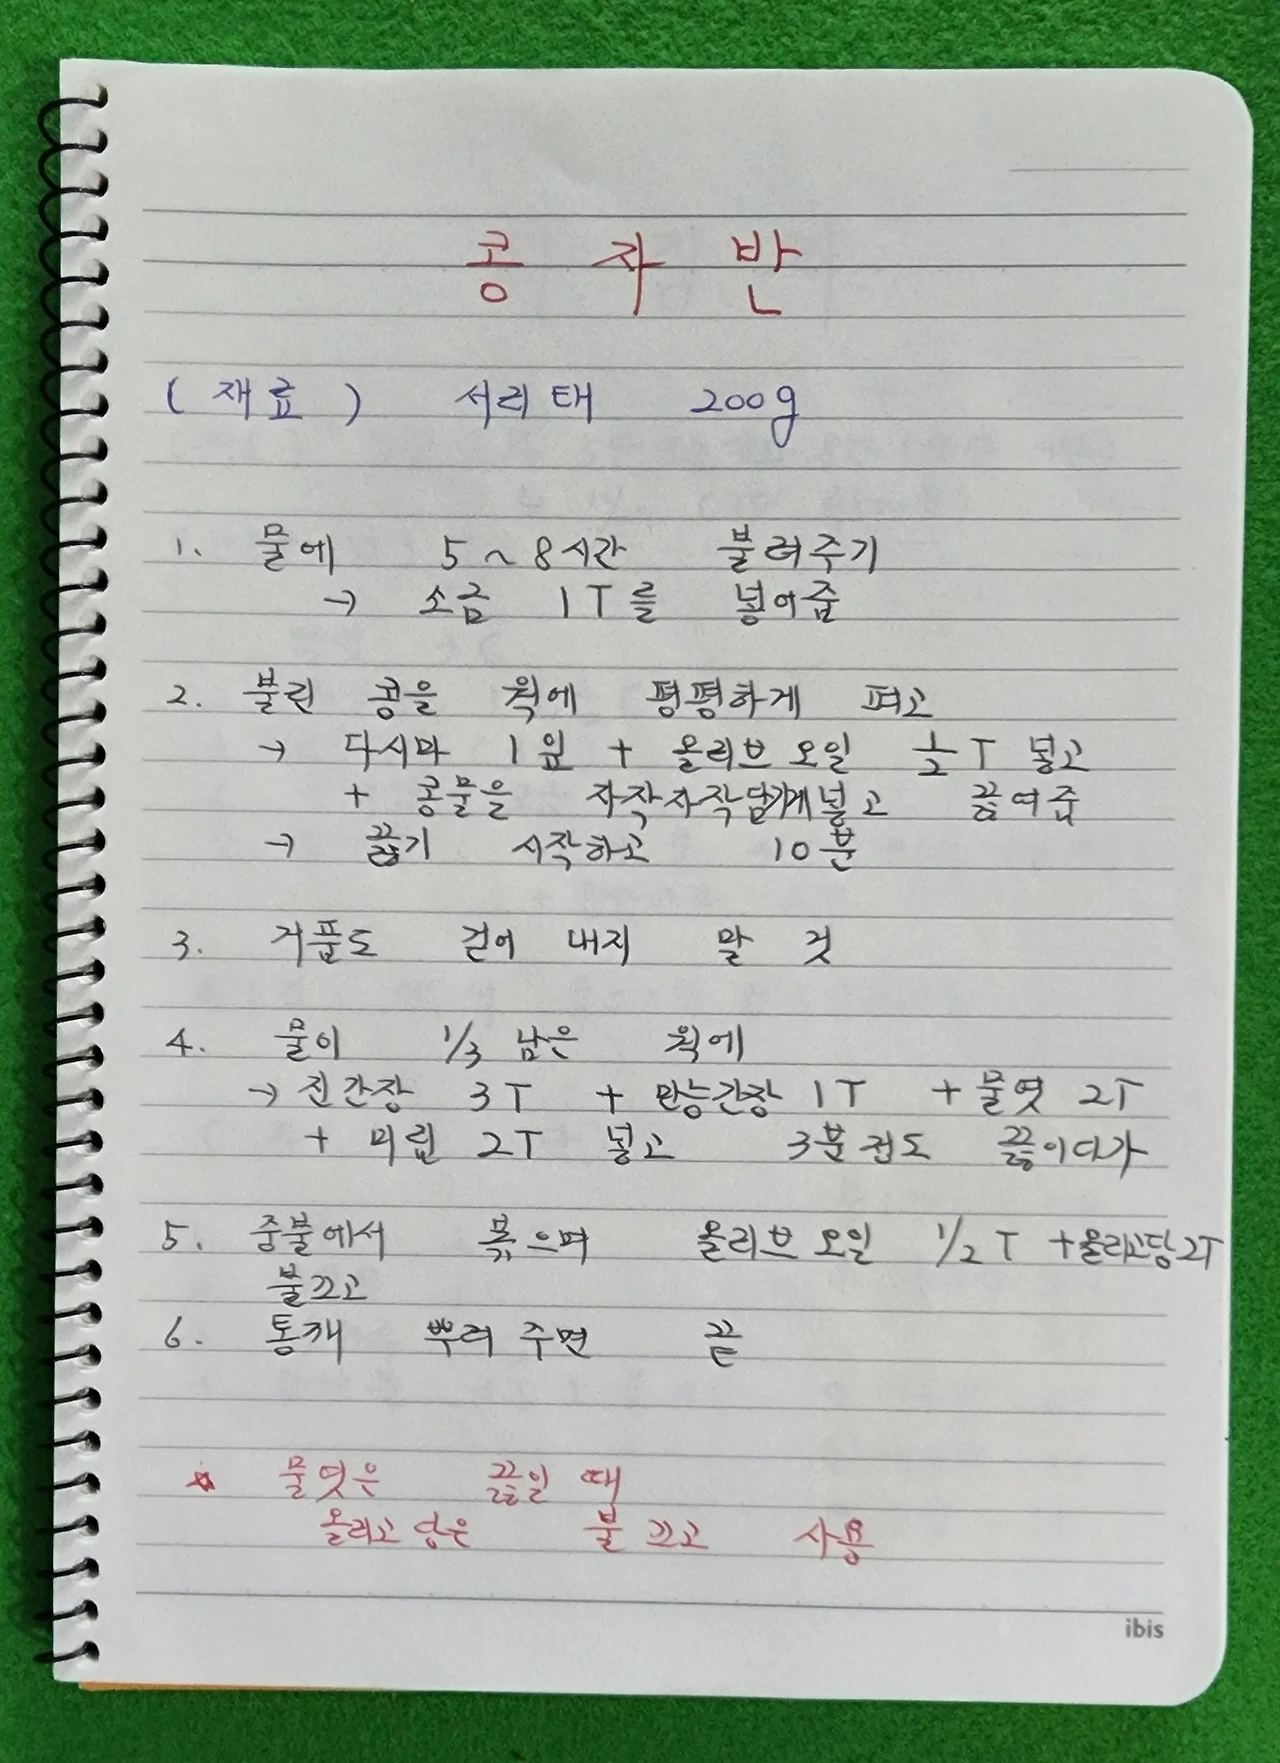 콩 자 반
( 재 료 ) 서리태 200g
1. 물에 5~8시간 불려주기
→ 소금 1T를 넣어줍
2. 불린 콩을 웍에 평평하게 펴고
→ 다시마 1잎 + 올리브 오일 1/2 T 넣고
+ 콩물을 자작자작담기게 넣고 끓여줍
→ 끓기 시작하고 10분
3. 거품도 걷어 내지 말 것
4. 물이 1/3 남은 웍에
→ 진간장 3T + 만능간장 1T + 물엿 2T
+ 미림 2T 넣고 3분 정도 끓이다가
5. 중불에서 볶으며 올리브 오일 1/2 T + 올리고당 2T
불끄고
6. 통깨 뿌려 주면 끝
☆ 물엿은 끓일 때
올리고 당은 불 끄고 사용
ibis